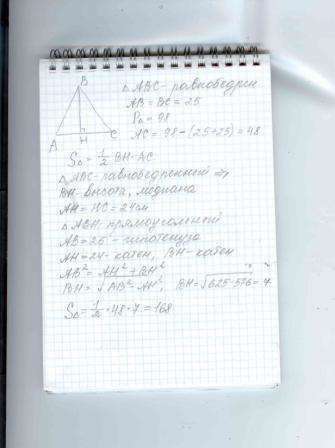 B
A H C
△ ABC - равнобедрен
AB = BC = 25
P△ = 98
AC = 98 - (25+25) = 48
S△ = 1/2 BH·AC
△ABC - равнобедренный ⇒
BH - высота, медиана
AH = HC = 24см
△ ABH - прямоуголенгий
AB = 25 - гипотенуза
AH = 24 - катет, BH - катет
AB² = AH² + BH²
BH = √AB² - AH², BH = √625-576 = 7
S△ = 1/2 · 48 · 7 = 168